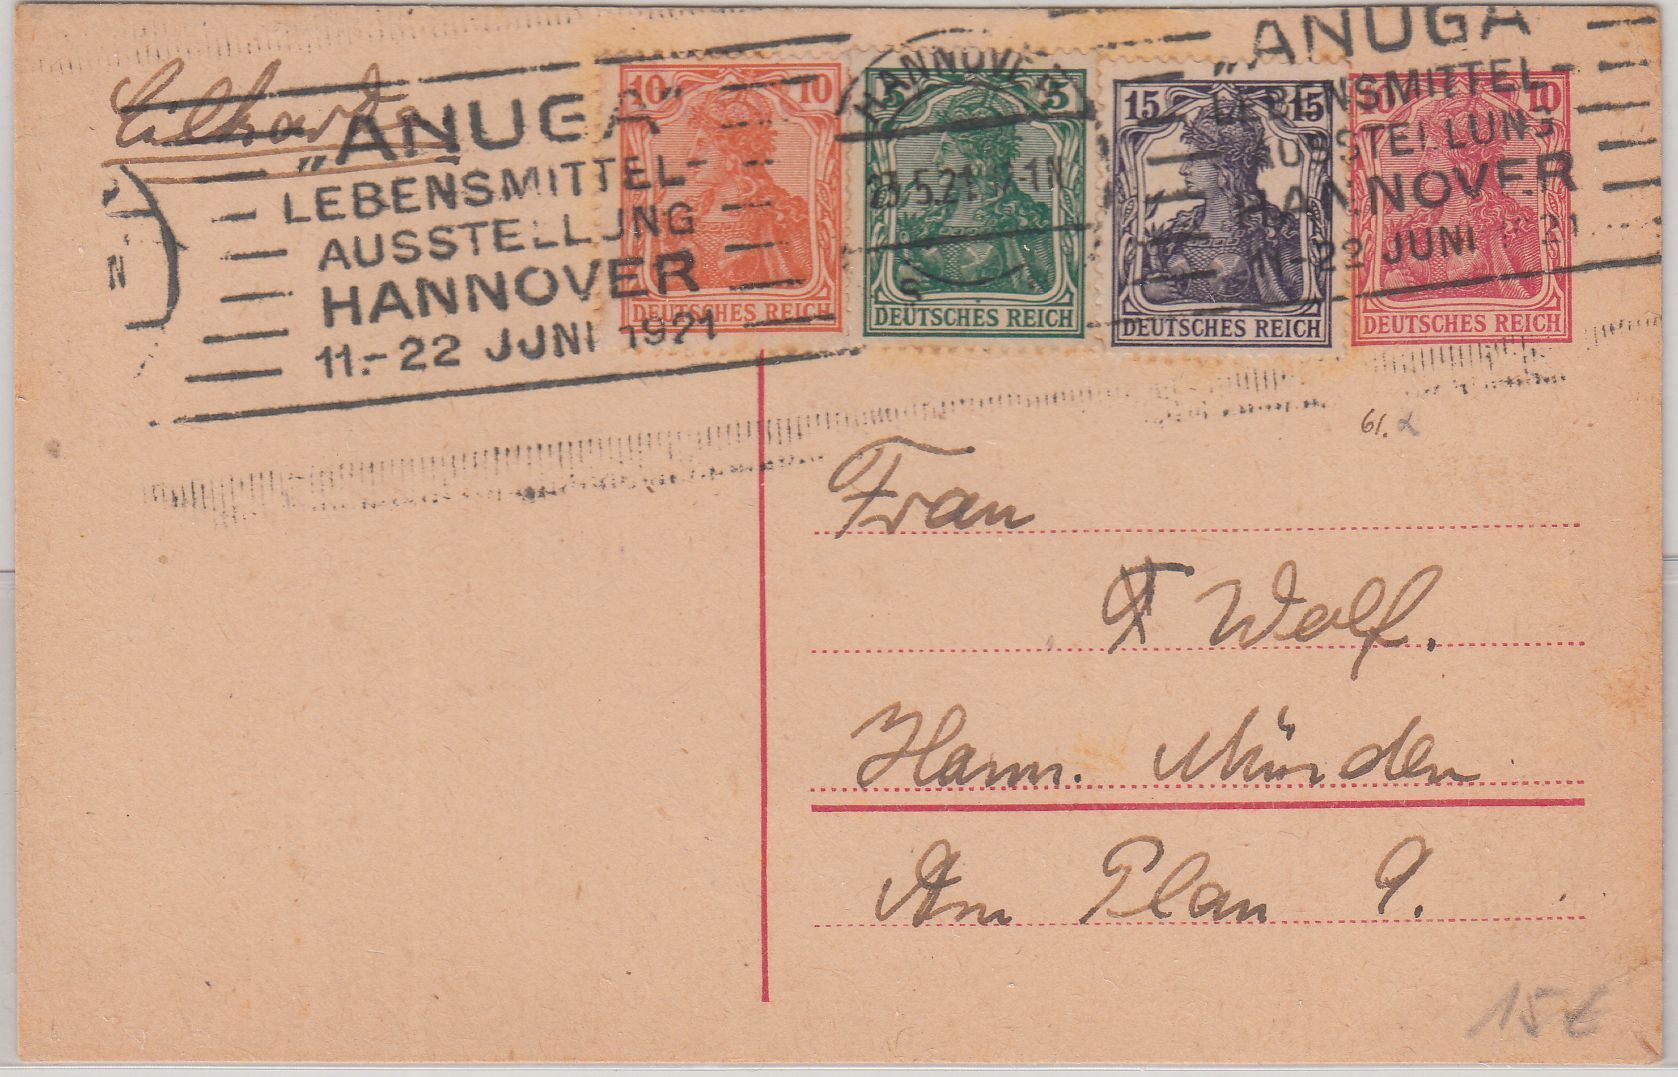 „ANUGA“
LEBENSMITTEL-
AUSSTELLUNG
HANNOVER
11.-22 JUNI 1921
10 10
DEUTSCHES REICH
HANNOVER
23.5.21. 1N
5 5
DEUTSCHES REICH
15 15
DEUTSCHES REICH
10 10
DEUTSCHES REICH
„ANUGA
LEBENSMITTEL-
AUSSTELLUNG
HANNOVER
11.-22 JUNI 1921
61.
Frau
Wolf.
Hann. Münden
Am Plan 9.
15 €